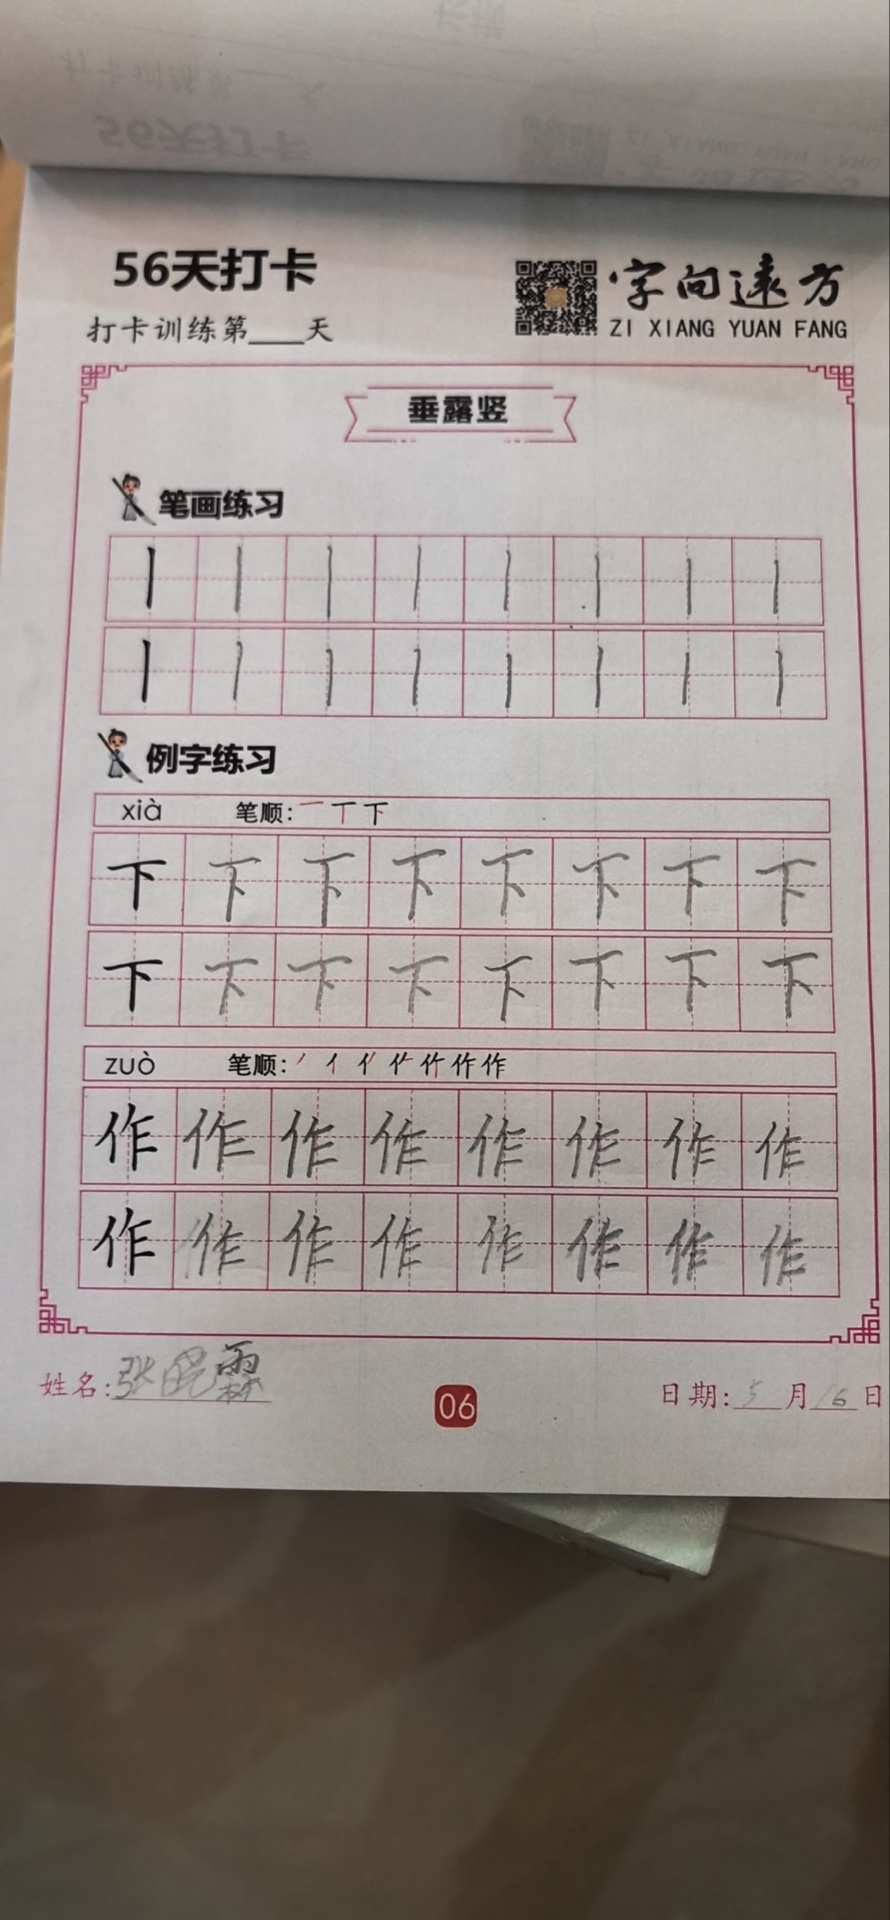 56天打卡
打卡训练第___天
字向遠方
ZI XIANG YUAN FANG
垂露竖
笔画练习
丨 丨 丨 丨 丨 丨 丨 丨
丨 丨 丨 丨 丨 丨 丨 丨
例字练习
xià 笔顺: 一 丅 下
下 下 下 下 下 下 下 下
下 下 下 下 下 下 下 下
zuò 笔顺:
作 作 作 作 作 作 作 作
作 作 作 作 作 作 作 作
姓名:张晓霖
06
日期:5月16日